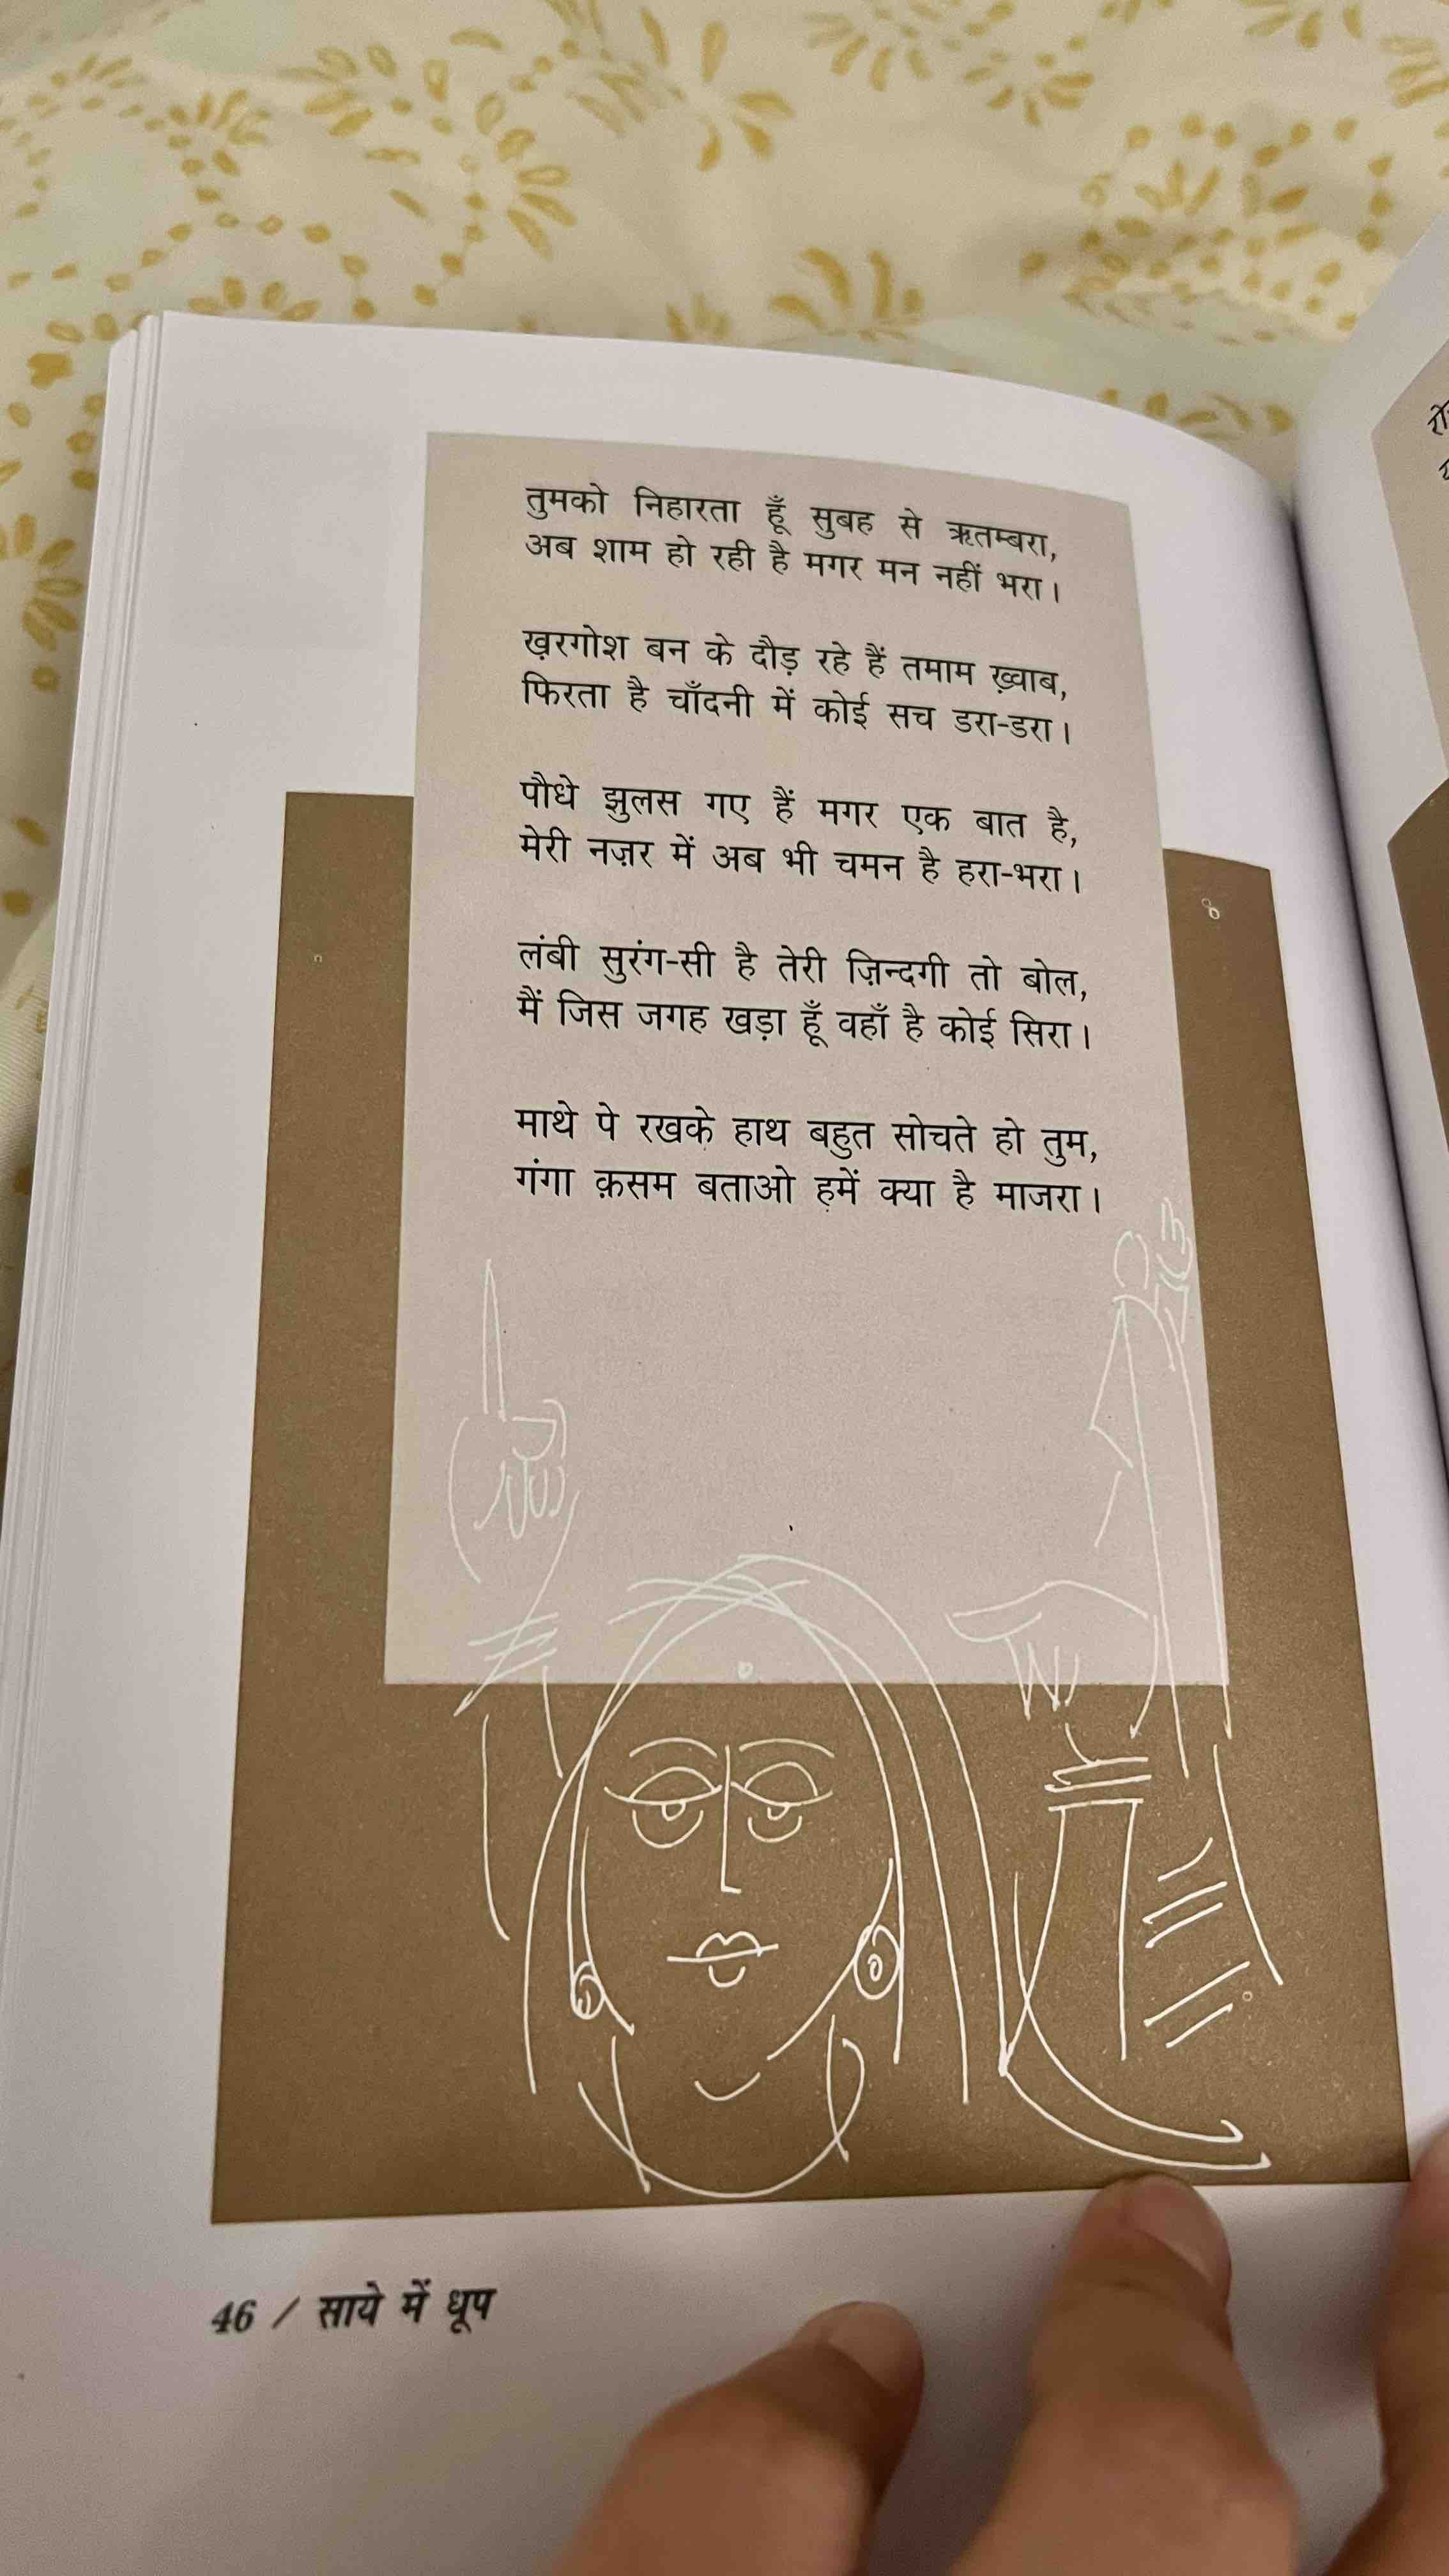 तुमको निहारता हूँ सुबह से ऋतम्बरा,
अब शाम हो रही है मगर मन नहीं भरा।
ख़रगोश बन के दौड़ रहे हैं तमाम ख़्वाब,
फिरता है चाँदनी में कोई सच डरा-डरा।
पौधे झुलस गए हैं मगर एक बात है,
मेरी नज़र में अब भी चमन है हरा-भरा।
लंबी सुरंग-सी है तेरी ज़िन्दगी तो बोल,
मैं जिस जगह खड़ा हूँ वहाँ है कोई सिरा।
माथे पे रखके हाथ बहुत सोचते हो तुम,
गंगा क़सम बताओ हमें क्या है माजरा।
46 / साये में धूप